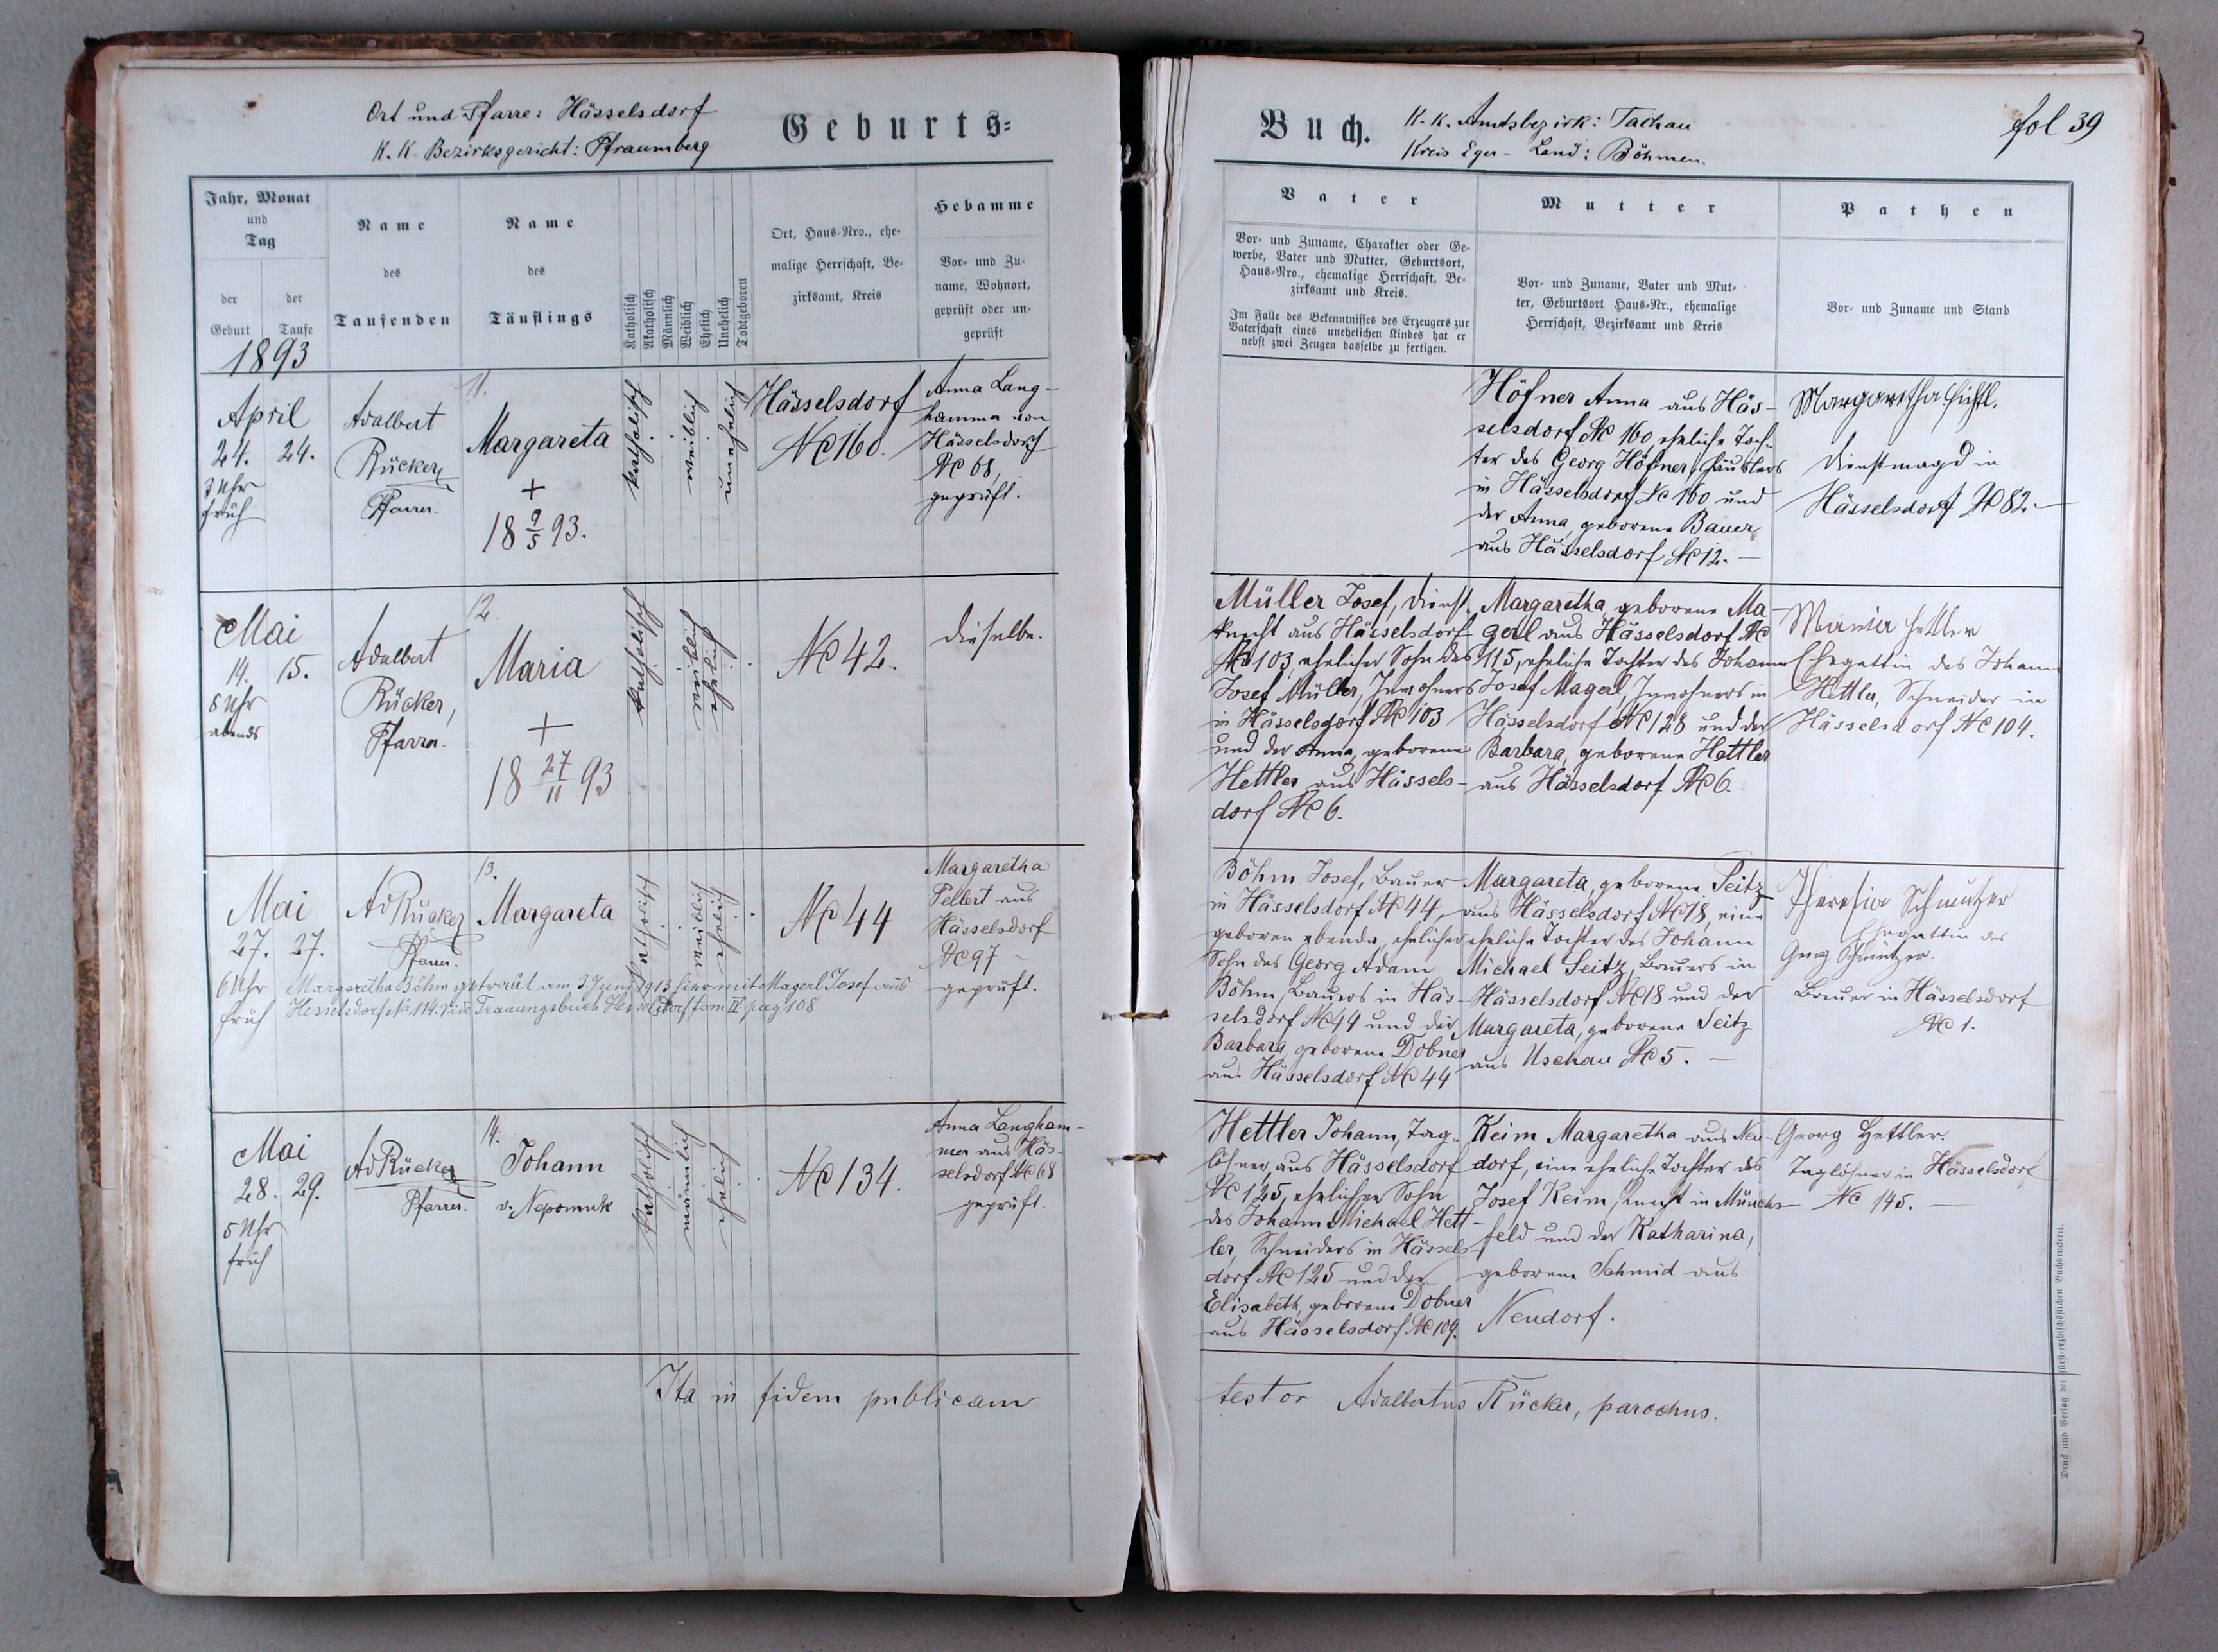 Ort und Pfarre: Hässelsdorf
K. K. Bezirksgericht: Pfraumberg
Geburts=
Jahr, Monat
und
Tag
der
Geburt
der
Taufe
1893
Name
des
Taufenden
Name
des
Täuflings
Katholisch
Akatholisch
Männlich
Weiblich
Ehelich
Unehelich
Todtgeboren
Ort, Haus-Nro., ehe-
malige Herrschaft, Be-
zirksamt, Kreis
Hebamme
Vor- und Zu-
name, Wohnort,
geprüft oder un-
geprüft
April
24. 24.
3 Uhr
früh
Adalbert
Rücker
Pfarrer.
11.
Margareta
+
18 9/5 93.
katholisch
weiblich
unehelich
Hässelsdorf
№ 160.
Anna Lang-
hammer von
Hässelsdorf
№ 68,
geprüft.
Mai
14. 15.
8 Uhr
abends
Adalbert
Rücker,
Pfarrer.
12.
Maria
+
18 27/11 93
katholisch
weiblich
ehelich
№ 42.
dieselbe.
Mai
27. 27.
6 Uhr
früh
Ad Rücker
Pfarrer.
13.
Margareta
katholisch
weiblich
ehelich
№ 44
Margaretha
Pellert aus
Hässelsdorf
№ 97
geprüft.
Margaretha Böhm getraut am 3. Juni 1913 hier mit Magerl Josef aus
Hesselsdorf № 114. Vide Trauungsbuch Hesselsdorf tom IV pag 108
Mai
28. 29.
5 Uhr
früh
Ad Rücker
Pfarrer.
14.
Johann
v. Nepomuk
katholisch
männlich
ehelich
№ 134.
Anna Langham-
mer aus Häs-
selsdorf № 68
geprüft.
Ita in fidem publicam
Buch.
K. K. Amtsbezirk: Tachau
Kreis Eger - Land: Böhmen.
fol 39
Vater
Vor- und Zuname, Charakter oder Ge-
werbe, Vater und Mutter, Geburtsort,
Haus-Nro., ehemalige Herrschaft, Be-
zirksamt und Kreis.
Im Falle des Bekenntnisses des Erzeugers zur
Vaterschaft eines unehelichen Kindes hat er
nebst zwei Zeugen dasselbe zu fertigen.
Mutter
Vor- und Zuname, Vater und Mut-
ter, Geburtsort Haus-Nr., ehemalige
Herrschaft, Bezirksamt und Kreis
Pathen
Vor- und Zuname und Stand
Höfner Anna aus Häs-
selsdorf № 160, eheliche Toch-
ter des Georg Höfner, Häuslers
in Hässelsdorf № 160 und
der Anna, geborene Bauer
aus Hässelsdorf № 12. —
Margaretha
Dienstmagd in
Hässelsdorf № 82. —
Müller Josef, Dienst-
knecht aus Hässelsdorf
№ 103, ehelicher Sohn des
Josef Müller, Inwohners
in Hässelsdorf № 103
und der Anna, geborene
Hettler aus Hässels-
dorf № 6.
Margaretha, geborene Ma-
gerl aus Hässelsdorf №
115, eheliche Tochter des Johann
Josef Magerl, Inwohners in
Hässelsdorf № 128 und der
Barbara, geborene Hettler
aus Hässelsdorf № 6.
Maria Hettler
Ehegattin des Johann
Hettler, Schneider in
Hässelsdorf № 104.
Böhm Josef, Bauer
in Hässelsdorf № 44,
geboren ebenda, ehelicher
Sohn des Georg Adam
Böhm, Bauers in Häs-
selsdorf № 44 und der
Barbara geborene Dobner
aus Hässelsdorf № 44
Margareta, geborene Seitz
aus Hässelsdorf № 18, eine
eheliche Tochter des Johann
Michael Seitz, Bauers in
Hässelsdorf № 18 und der
Margareta, geborene Seitz
aus Uschau № 5. —
Theresia Schmutzer
Ehegattin des
Georg Schmutzer.
Bauer in Hässelsdorf
№ 1.
Hettler Johann, Tag-
löhner aus Hässelsdorf
№ 125, ehelicher Sohn
des Johann Michael Hett-
ler, Schneiders in Hässels-
dorf № 125 und der
Elisabeth, geborene Dobner
aus Hässelsdorf № 109.
Keim Margaretha aus Neu-
dorf, eine eheliche Tochter des
Josef Keim, Knecht in Münchs-
feld und der Katharina,
geborene Schmid aus
Neudorf.
Georg Hettler.
Taglöhner in Hässelsdorf
№ 145. —
testor Adalbertus Rücker, parochus.
Druck und Verlag der fürst-erzbischöflichen Buchdruckerei.